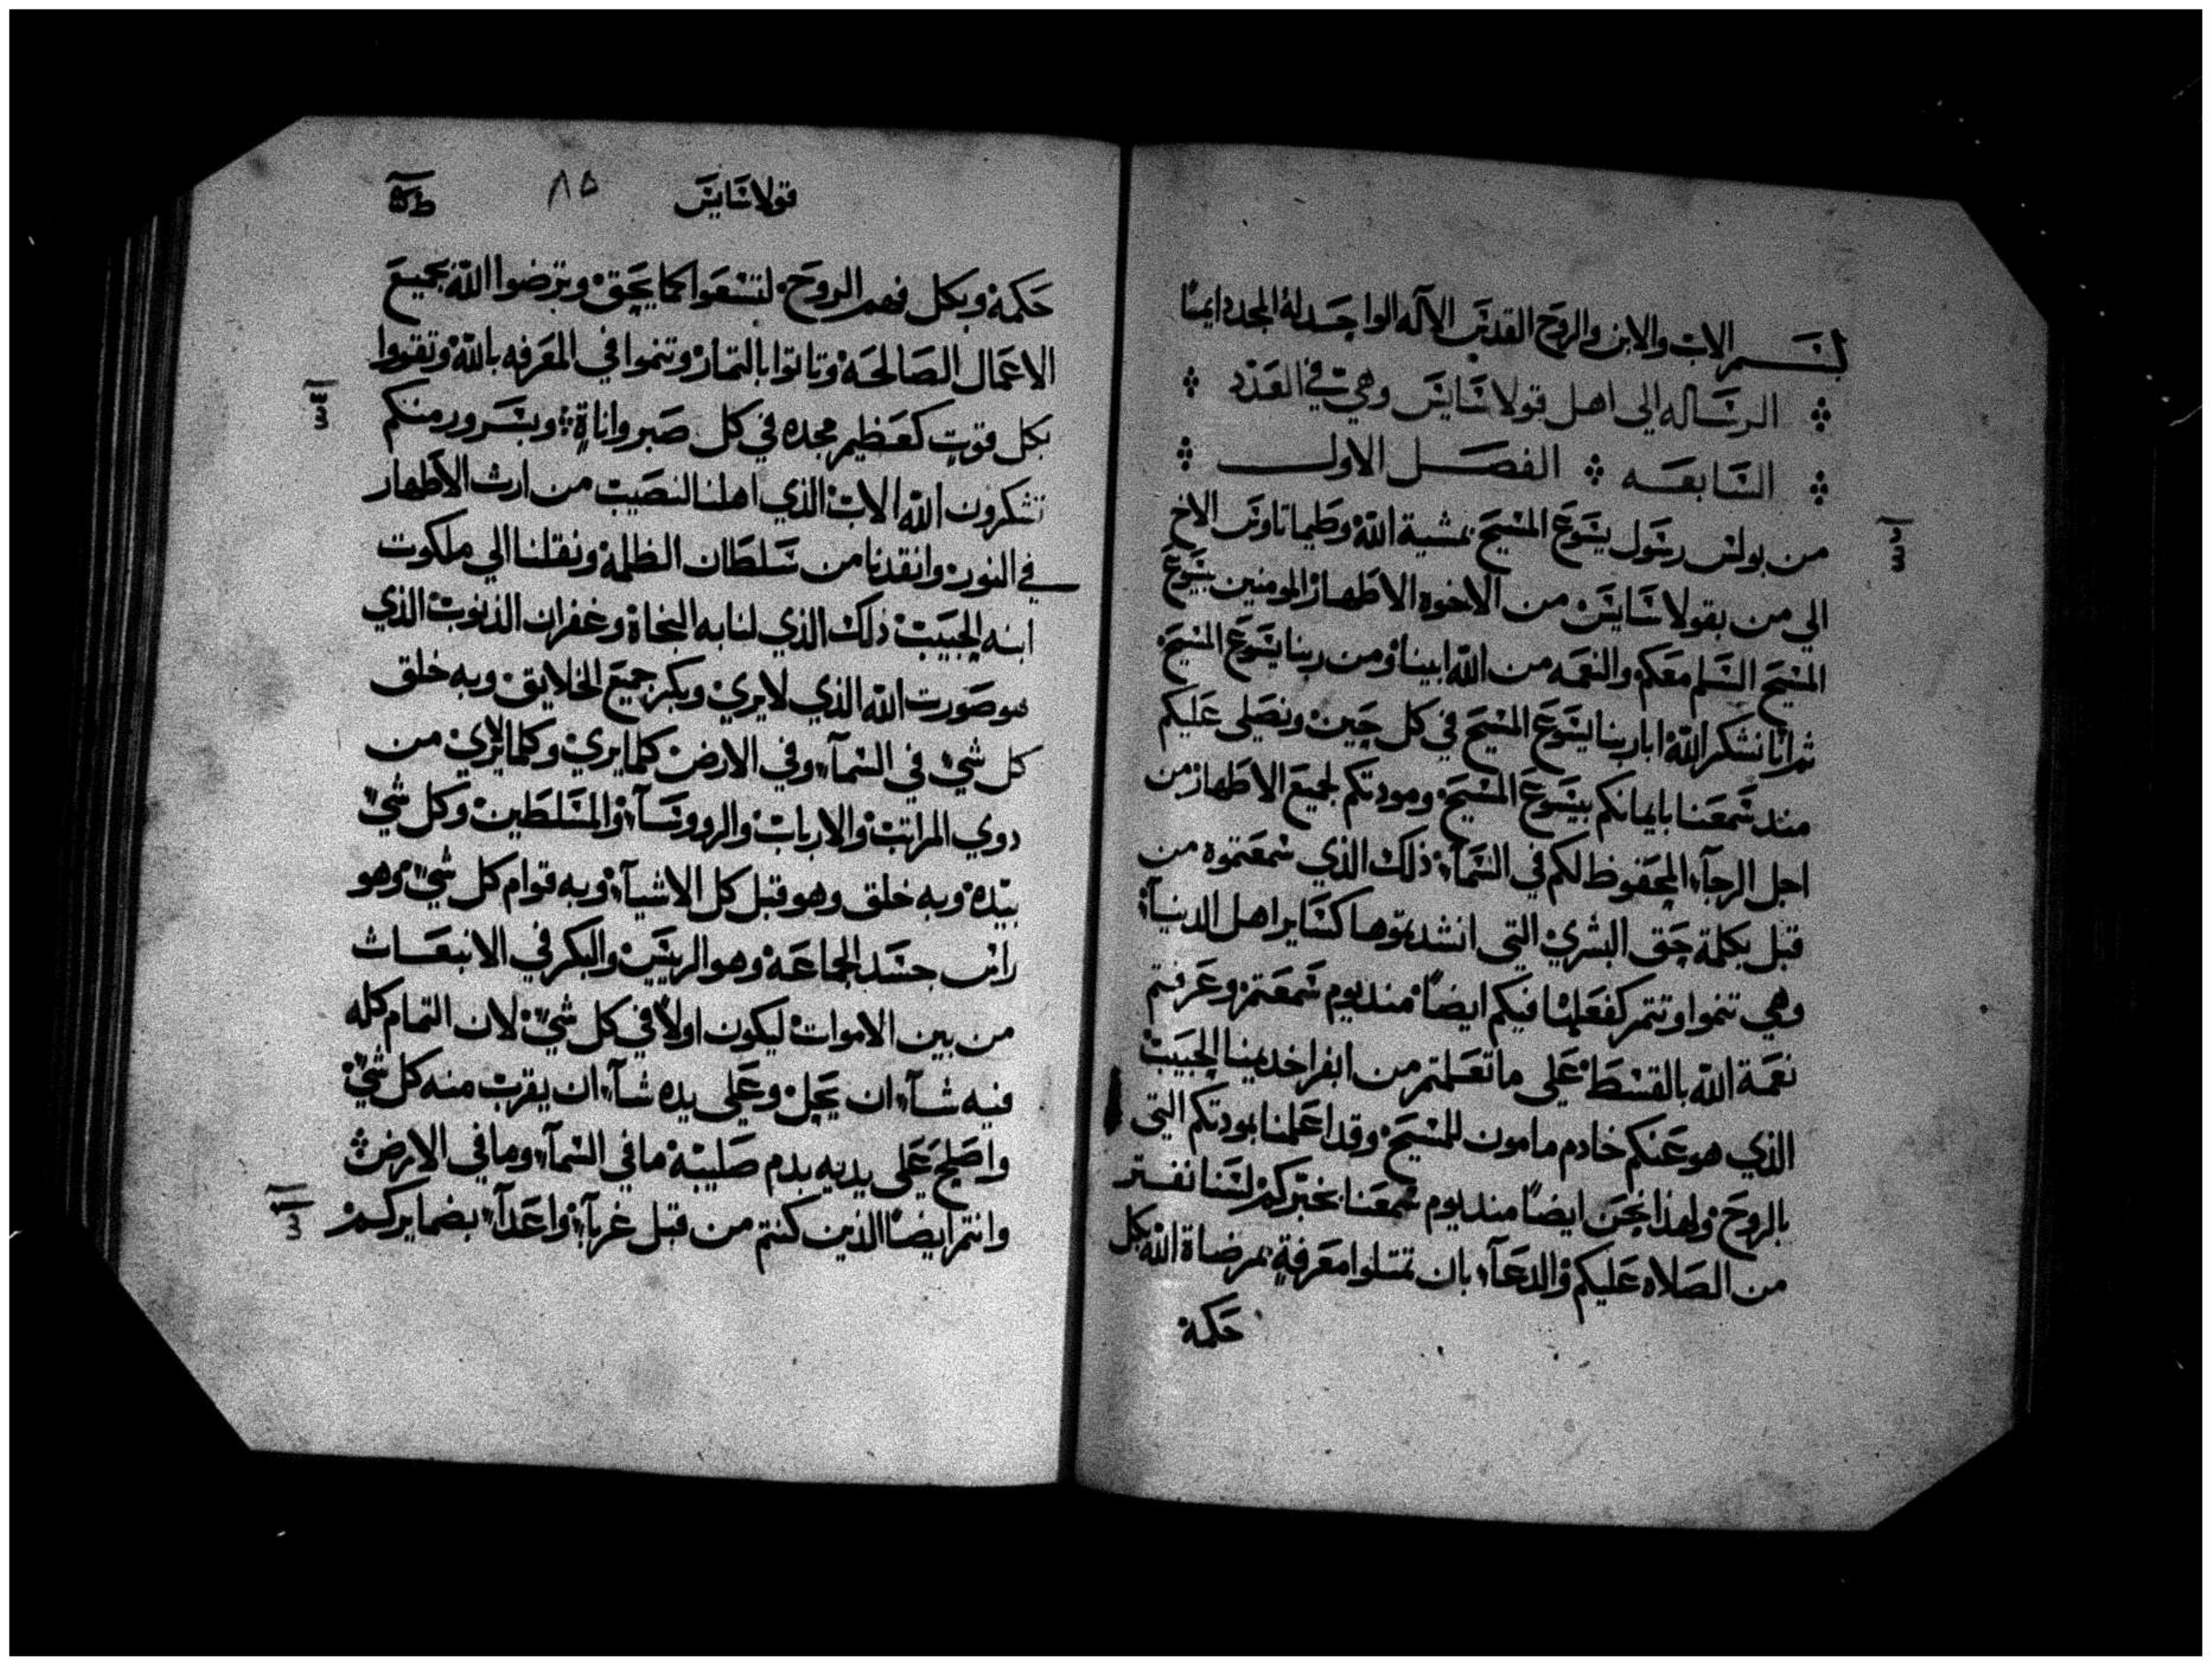 بسم الاب والابن والروح القدس الاله الواحد له المجد دايمًا
الرساله الى اهل قولاسايس وهي في العدد
السابعه الفصل الاول
من بولس رسول يسوع المسيح بمشية الله وطيماتاوس الاخ
الي من بقولاسايس من الاخوه الاطهار المومنين بيسوع
المسيح السلم معكم والنعمه من الله ابينا ومن ربنا يسوع المسيح
ثم انا نشكر الله ابا ربنا يسوع المسيح في كل حين ونصلى عليكم
مند سمعنا بايمانكم بيسوع المسيح ومودتكم لجميع الاطهار من
اجل الرجآء المحفوظ لكم في السمآء ذلك الذي سمعتموه من
قبل بكلمة حق البشري التى انشدتموها كساير اهل الدنيا
وهي تنموا وتتمر كفعلها فيكم ايضًا مند يوم سمعتم وعرفتم
نعمة الله بالقسط على ما تعلمتم من ابفرا خديمنا الحبيب
الذي هو عنكم خادم مامون للمسيح وقد اعلمنا بمودتكم التى
بالروح ولهذا نحن ايضًا مند يوم سمعنا بخبركم لسنا نفتر
من الصلاه عليكم والدعآء بان تمتلوا معرفةٍ بمرضاة الله بكل
حكمة
قولاسايس ٨٥
حكمة وبكل فهم الروح لتسعوا كما يحق وترضوا الله بجميع
الاعمال الصالحه وتاتوا بالتمار وتنموا في المعرفه بالله وتقووا
بكل قوت كعظيم مجده في كل صبر واناةٍ وبسرور منكم
تشكرون الله الاب الذي اهلنا لنصيب من ارث الاطهار
في النور وانقدنا من سلطان الظلمة ونقلنا الي ملكوت
ابنه الحبيب ذلك الذي لنا به النجاة وغفران الذنوب الذي
هو صورت الله الذي لا يري وبكر جميع الخلايق وبه خلق
كل شي في السمآء وفي الارض كلما يري وكلما لا يري من
دوي المراتب والارباب والرووسآء والمسلطين وكل شي
بيده وبه خلق وهو قبل كل الاشيآء وبه قوام كل شي وهو
راس جسد الجماعة وهو الرييس والبكر في الانبعاث
من بين الاموات ليكون اولاً في كل شي لان التمام كله
فيه شآء ان يحل وعلى يده شآء ان يقرب منه كل شي
واصلح على يديه بدم صليبه ما في السمآء وما في الارض
وانتم ايضًا الذين كنتم من قبل غربآء واعدآء بضمايركم